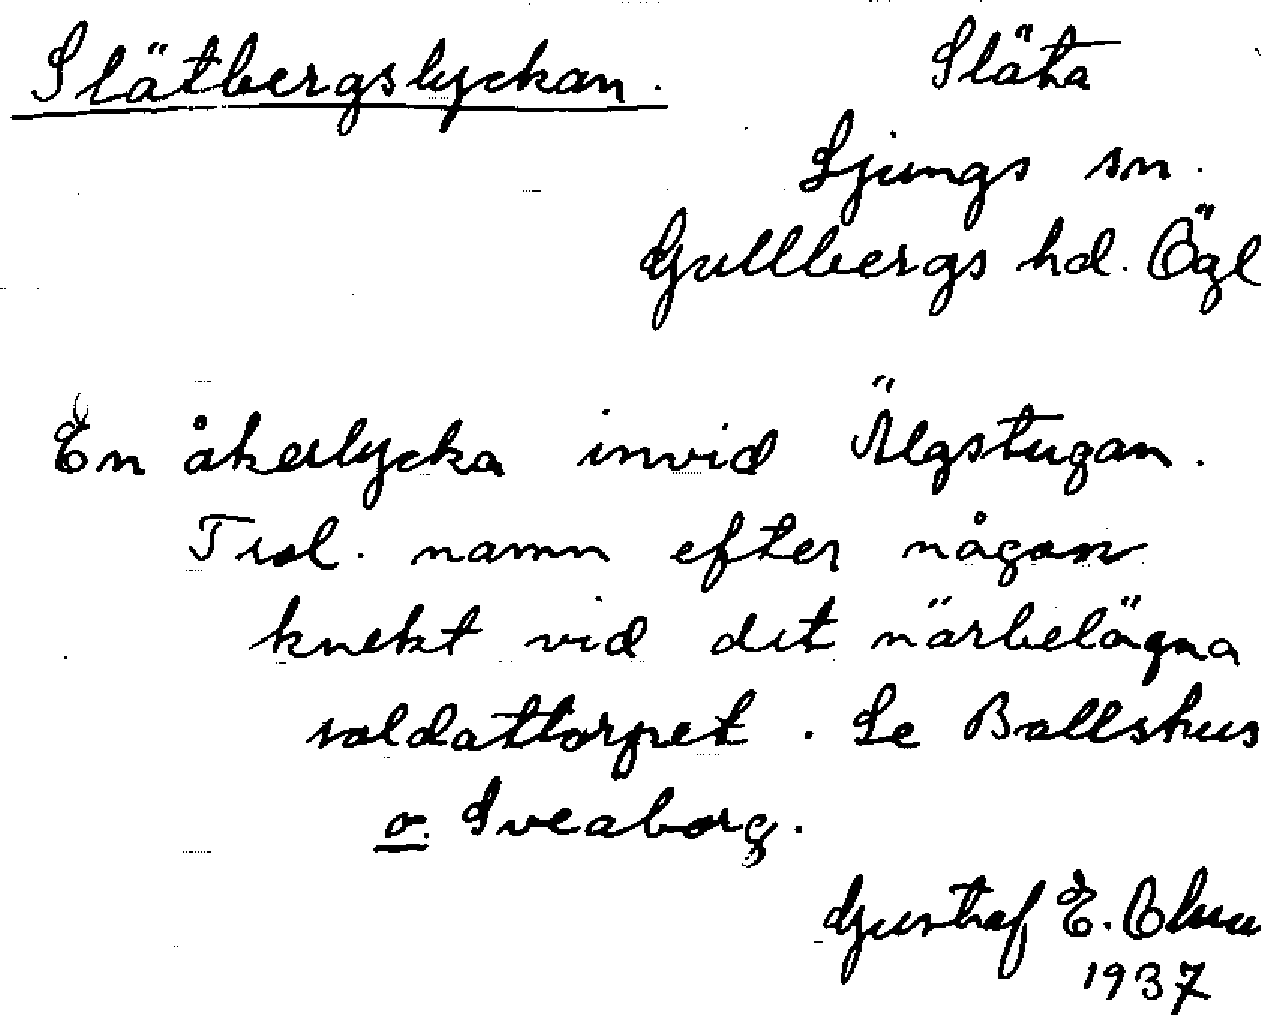 Slätbergslyckan.
Släta
Ljungs sn.
Gullbergs hd. Ögl
En åkerlycka invid Älgstugan.
Trol. namn efter någon
knekt vid det närbelägna
soldattorpet. Se Ballshus
o. Sveaborg.
Gustaf E.
1937